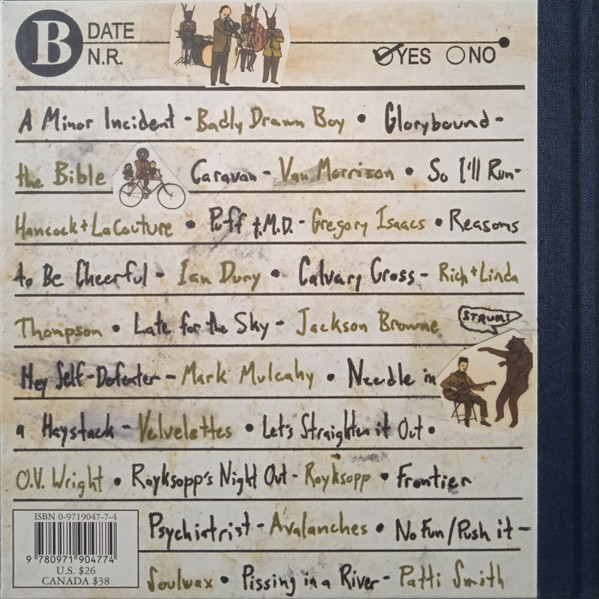 B DATE
N.R.
YES NO
A Minor Incident - Badly Drawn Boy • Glorybound -
the Bible Caravan - Van Morrison • So I'll Run -
Hancock + LaCouture • Puff t.M.D. - Gregory Isaacs • Reasons
to Be Cheerful - Ian Dury • Calvary Cross - Rich + Linda
Thompson • Late for the Sky - Jackson Browne
STRUM!
Hey Self-Defeater - Mark Mulcahy • Needle in
a Haystack - Velvelettes • Let's Straighten it Out •
O.V. Wright • Royksopp's Night Out - Royksopp • Frontier
Psychiatrist - Avalanches • No Fun / Push it -
Soulwax • Pissing in a River - Patti Smith
ISBN 0-9719047-7-4
9 780971 904774
U.S. $26
CANADA $38